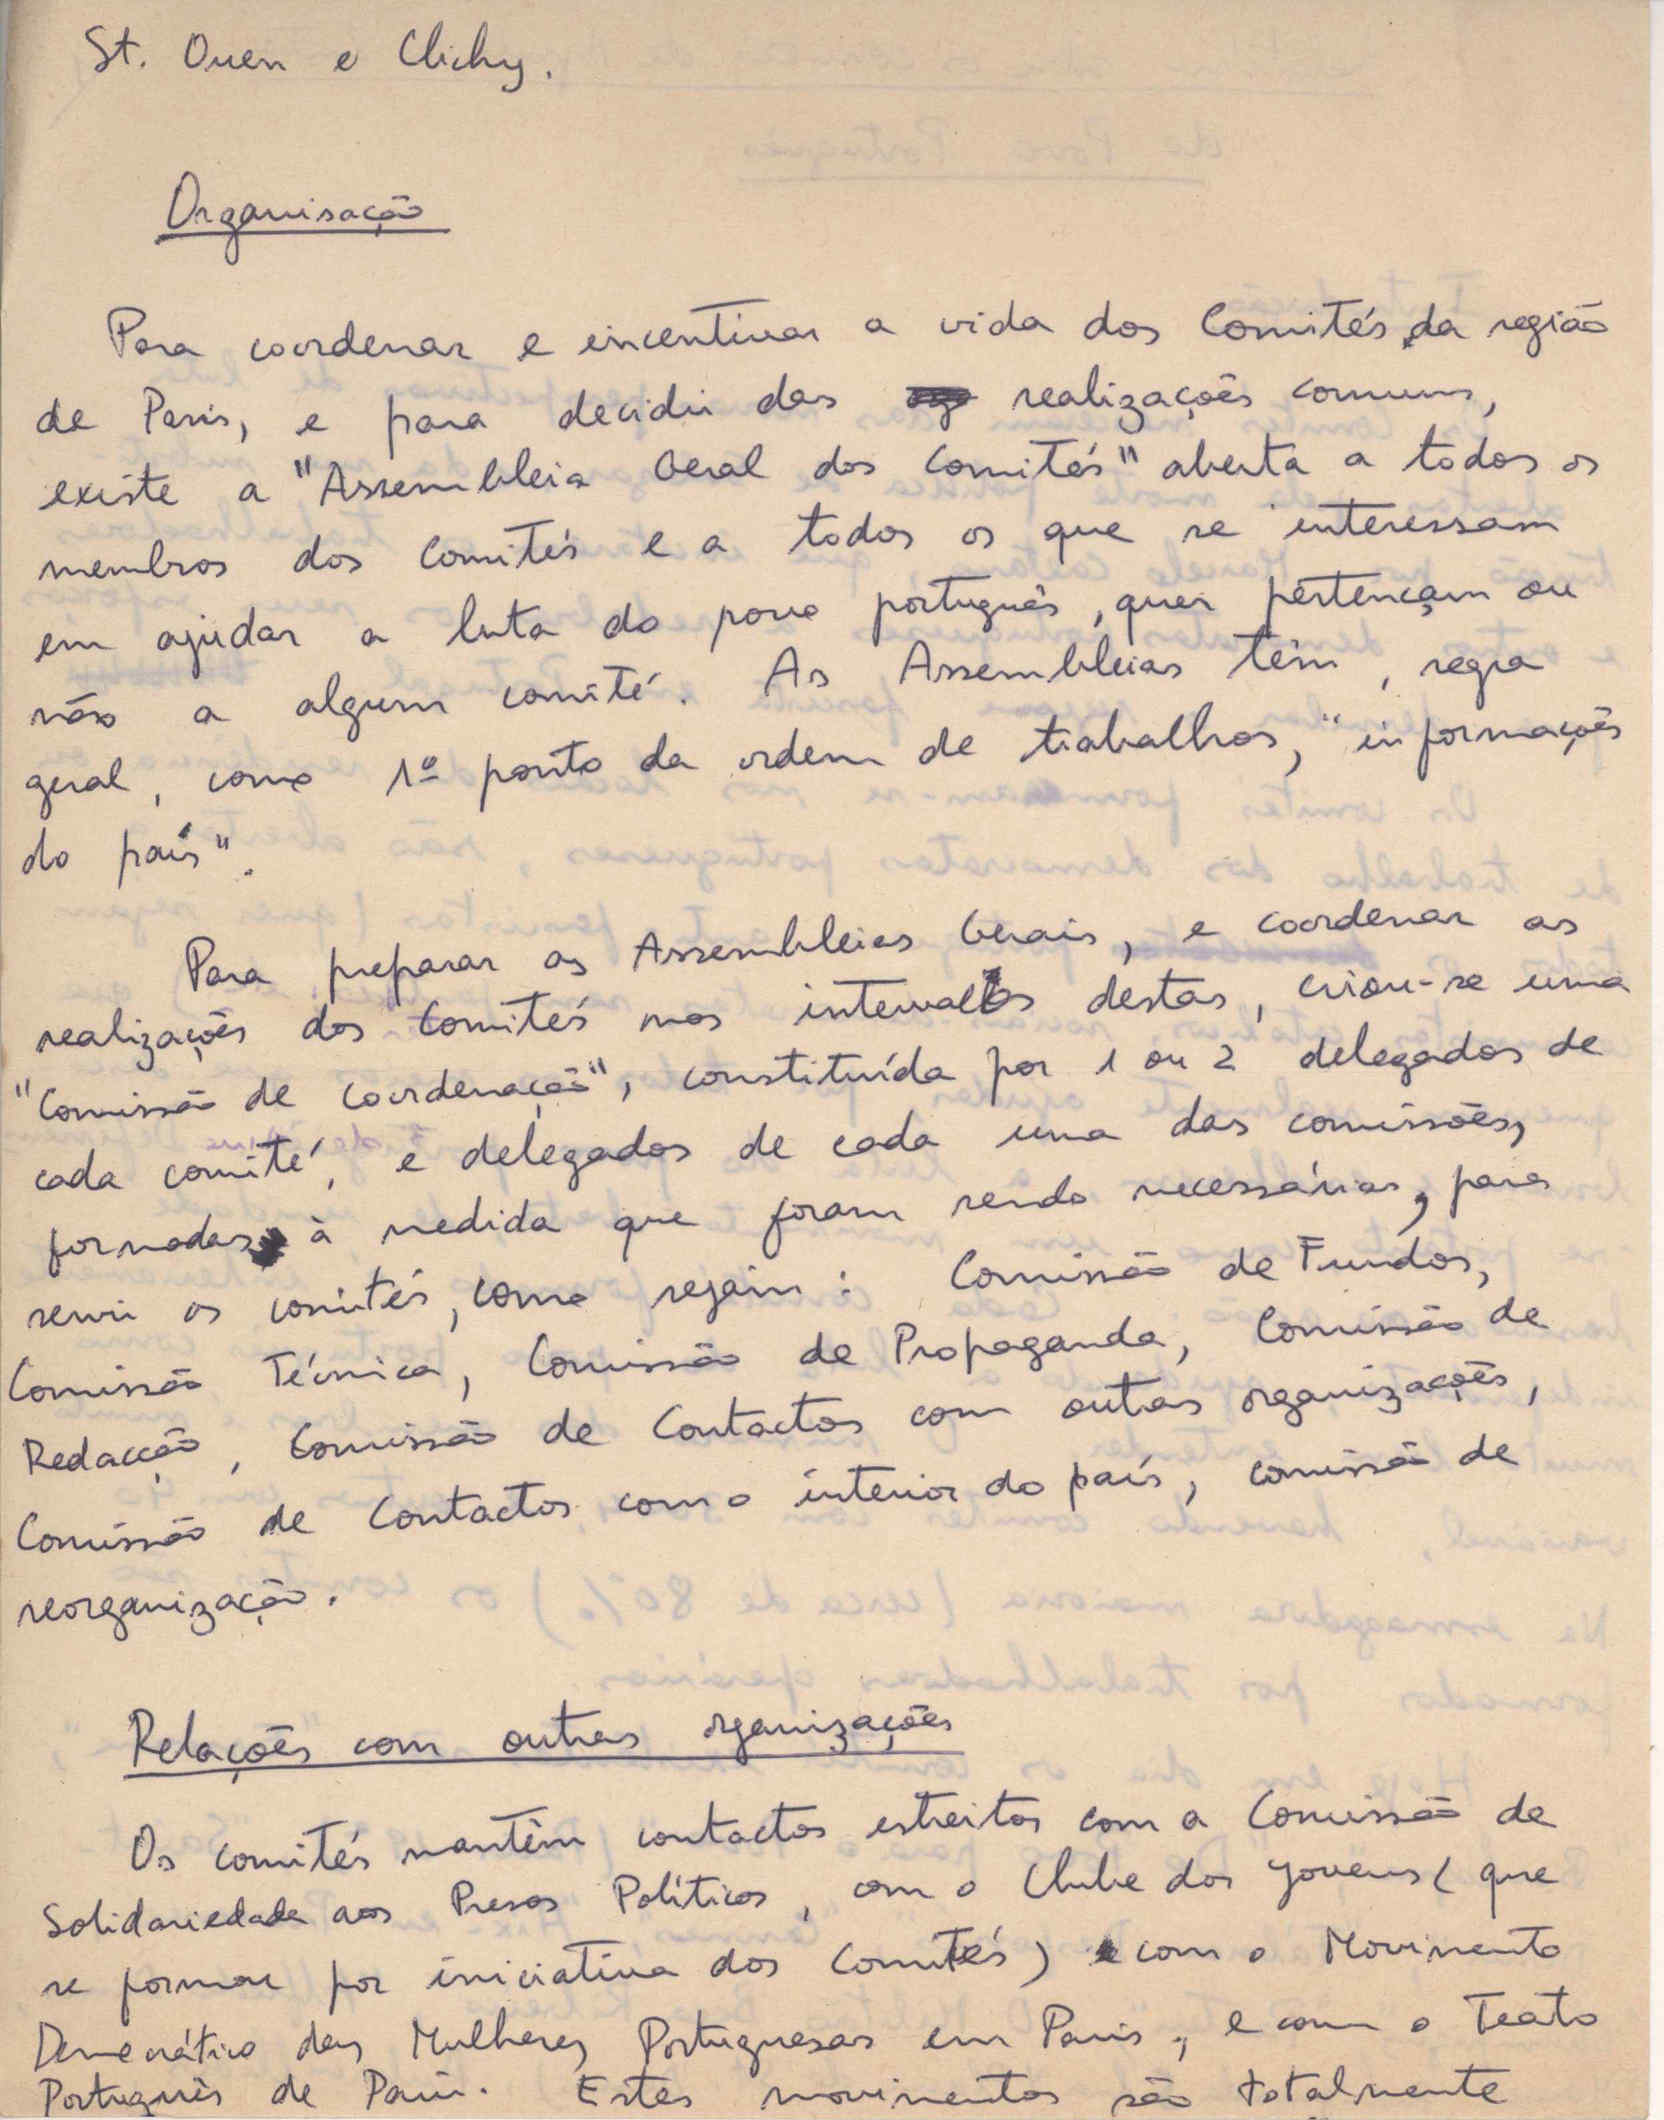 St. Ouen e Clichy.
Organisação
Para coordenar e incentivar a vida dos Comités da região
de Paris, e para decidir das realizações comuns,
existe a "Assembleia Geral dos Comités" aberta a todos os
membros dos Comités e a todos os que se interessam
em ajudar a luta do povo português, quer pertençam ou
não a algum comité. As Assembleias têm, regra
geral, como 1º ponto da ordem de trabalhos, "informações
do país".
Para preparar as Assembleias Gerais, e coordenar as
realizações dos Comités nos intervalos destas, criou-se uma
"Comissão de Coordenação", constituída por 1 ou 2 delegados de
cada comité, e delegados de cada uma das comissões,
formadas à medida que foram sendo necessárias, para
servir os comités, como sejam: Comissão de Fundos,
Comissão Técnica, Comissão de Propaganda, Comissão de
Redacção, Comissão de Contactos com outras organizações,
Comissão de Contactos com o interior do país, comissão de
reorganização.
Relações com outras organizações
Os comités mantêm contactos estreitos com a Comissão de
Solidariedade aos Presos Políticos, com o Clube dos Jovens (que
se formou por iniciativa dos Comités) e com o Movimento
Democrático das Mulheres Portuguesas em Paris, e com o Teatro
Português de Paris. Estes movimentos são totalmente